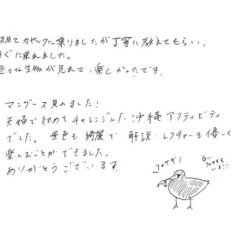 初めてカヤックに乗りましたが丁寧に教えてもらい、
すぐに乗れました。
色々な生物が見れて、楽しかったです。
マングース見れました!
夫婦で初めてチャレンジした沖縄アクティビティ
でした。景色も綺麗で、解説・レクチャーも優しく
楽しむことができました。
ありがとうございます